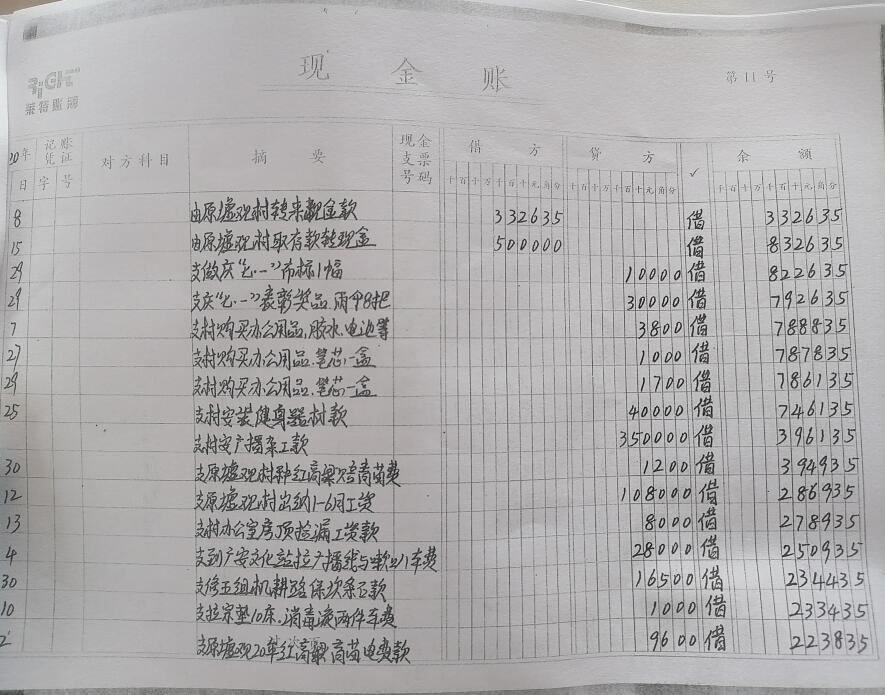 RIGHT
莱特账簿
现 金 账
第 11 号
20年 记账凭证 对方科目 摘 要 现金支票号码 借 方 贷 方 ✓ 余 额
日 字 号 千百十万千百十元角分 千百十万千百十元角分 千百十万千百十元角分
8 由原墟观村转来现金款 332635 借 332635
15 由原墟观村取存款转现金 500000 借 832635
29 支做庆"七·一"布标1幅 10000 借 822635
29 支庆"七·一"表彰奖品,雨伞8把 30000 借 792635
7 支村购买办公用品,胶水,电池等 3800 借 788835
27 支村购买办公用品,笔芯一盒 1000 借 787835
29 支村购买办公用品,笔芯一盒 1700 借 786135
25 支村安装健身器材款 40000 借 746135
支村安广播杂工款 350000 借 396135
30 支原墟观村种红高粱赔青苗费 1200 借 394935
12 支原墟观村出纳1-6月工资 108000 借 286935
13 支村办公室房顶捡漏工资款 8000 借 278935
4 支到广安文化站拉广播线与喇叭车费 28000 借 250935
30 支修五组机耕路保坎条石款 16500 借 234435
10 支拉床垫10床,消毒液两件车费 1000 借 233435
2 支原墟观20年红高粱青苗电费款 9600 借 223835